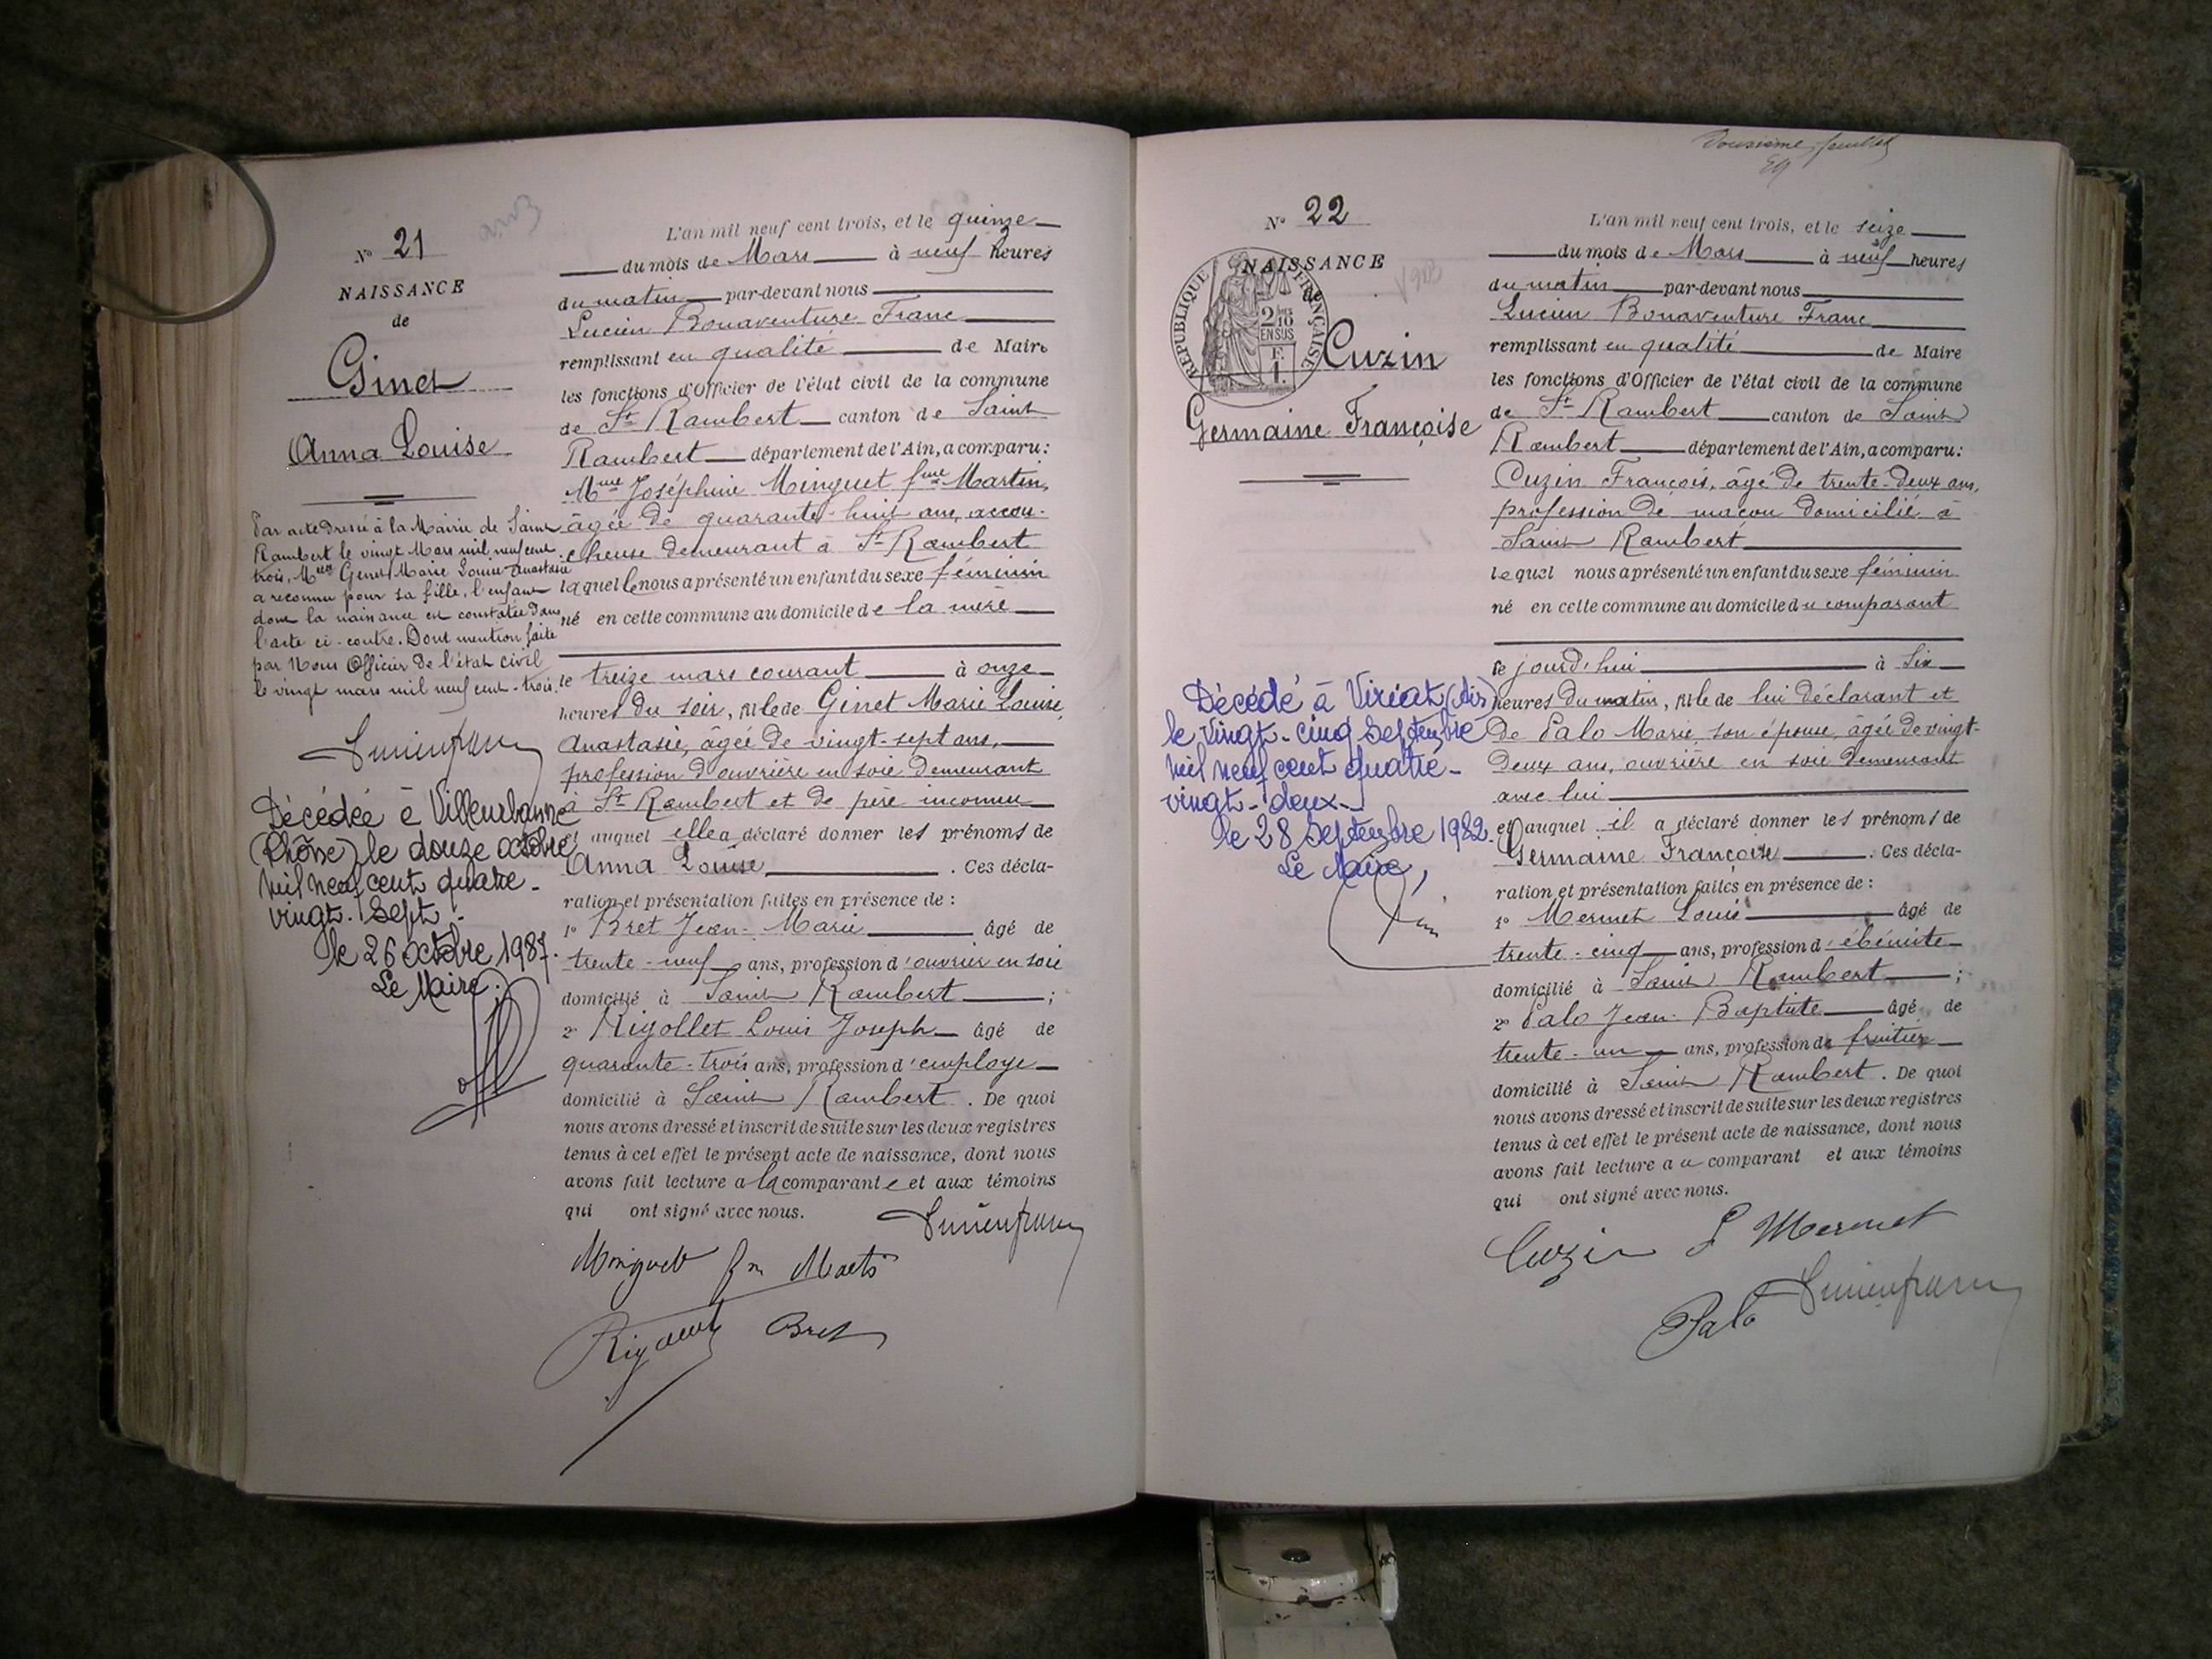 N° 21
NAISSANCE
de
Ginet
Anna Louise
Par acte dressé à la Mairie de Saint
Rambert le vingt Mars mil neuf cent
trois, Mlle Ginet Marie Louise Anastasie
a reconnu pour sa fille, l'enfant
dont la naissance est constatée dans
l'acte ci-contre. Dont mention faite
par Nous Officier de l'état civil
le vingt mars mil neuf cent-trois.
Lucien Franc
Décédée à Villeurbanne
(Rhône) le douze octobre
mil neuf cent quatre-
vingt-sept.
le 26 octobre 1987.
Le Maire.
L'an mil neuf cent trois, et le quinze
du mois de Mars à neuf heures
du matin par-devant nous
Lucien Bonaventure Franc
remplissant en qualité de Maire
les fonctions d'Officier de l'état civil de la commune
de St Rambert canton de Saint
Rambert département de l'Ain, a comparu:
Mme Joséphine Minguet fme Martin,
âgée de quarante-huit ans, accou-
cheuse demeurant à St Rambert
laquelle nous a présenté un enfant du sexe féminin
né en cette commune au domicile de la mère
le treize mars courant à onze
heures du soir, fille de Ginet Marie Louise
Anastasie, âgée de vingt-sept ans,
profession d'ouvrière en soie demeurant
à St Rambert et de père inconnu
et auquel elle a déclaré donner les prénoms de
Anna Louise . Ces décla-
ration et présentation faites en présence de :
1° Bret Jean-Marie âgé de
trente-neuf ans, profession d'ouvrier en soie
domicilié à Saint Rambert ;
2° Rigollet Louis Joseph âgé de
quarante-trois ans, profession d'employé
domicilié à Saint Rambert . De quoi
nous avons dressé et inscrit de suite sur les deux registres
tenus à cet effet le présent acte de naissance, dont nous
avons fait lecture a la comparante et aux témoins
qui ont signé avec nous.
Lucien Franc
Minguet fm Martin
Bret
Douzième feuillet
N° 22
NAISSANCE
de
RÉPUBLIQUE FRANÇAISE
2/10 EN SUS
Cuzin
Germaine Françoise
Décédé à Viriat (Ain)
le vingt-cinq Septembre
mil neuf cent quatre-
vingt-deux-
le 28 Septembre 1982.
Le Maire,
L'an mil neuf cent trois, et le seize
du mois de Mars à neuf heures
du matin par-devant nous
Lucien Bonaventure Franc
remplissant en qualité de Maire
les fonctions d'Officier de l'état civil de la commune
de St Rambert canton de Saint
Rambert département de l'Ain, a comparu:
Cuzin François, âgé de trente-deux ans,
profession de maçon domicilié à
Saint Rambert
lequel nous a présenté un enfant du sexe féminin
né en cette commune au domicile du comparant
ce jourd'hui à six
heures du matin, fille de lui déclarant et
de Palo Marie son épouse, âgée de vingt-
deux ans, ouvrière en soie demeurant
avec lui
et auquel il a déclaré donner les prénoms de
Germaine Françoise . Ces décla-
ration et présentation faites en présence de :
1° Mermet Louis âgé de
trente-cinq ans, profession d'ébéniste
domicilié à Saint Rambert ;
2° Palo Jean-Baptiste âgé de
trente-un ans, profession de fruitier
domicilié à Saint Rambert . De quoi
nous avons dressé et inscrit de suite sur les deux registres
tenus à cet effet le présent acte de naissance, dont nous
avons fait lecture au comparant et aux témoins
qui ont signé avec nous.
Cuzin L Mermet
Lucien Franc
Palo